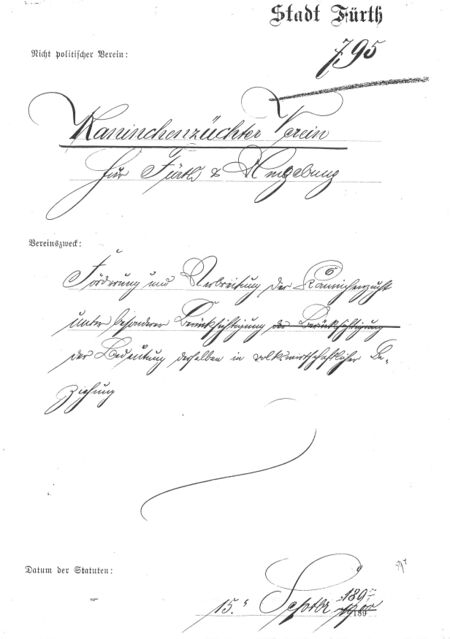 Stadt Fürth
795
Nicht politischer Verein:
Kaninchenzüchter Verein
für Fürth & Umgebung
Vereinszweck:
Förderung und Verbreitung der Kaninchenzucht
unter besonderer Berücksichtigung der Berücksichtigung
der Bedeutung derselben in volkswirthschaftlicher Be-
ziehung
Datum der Statuten:
15. Septbr 189